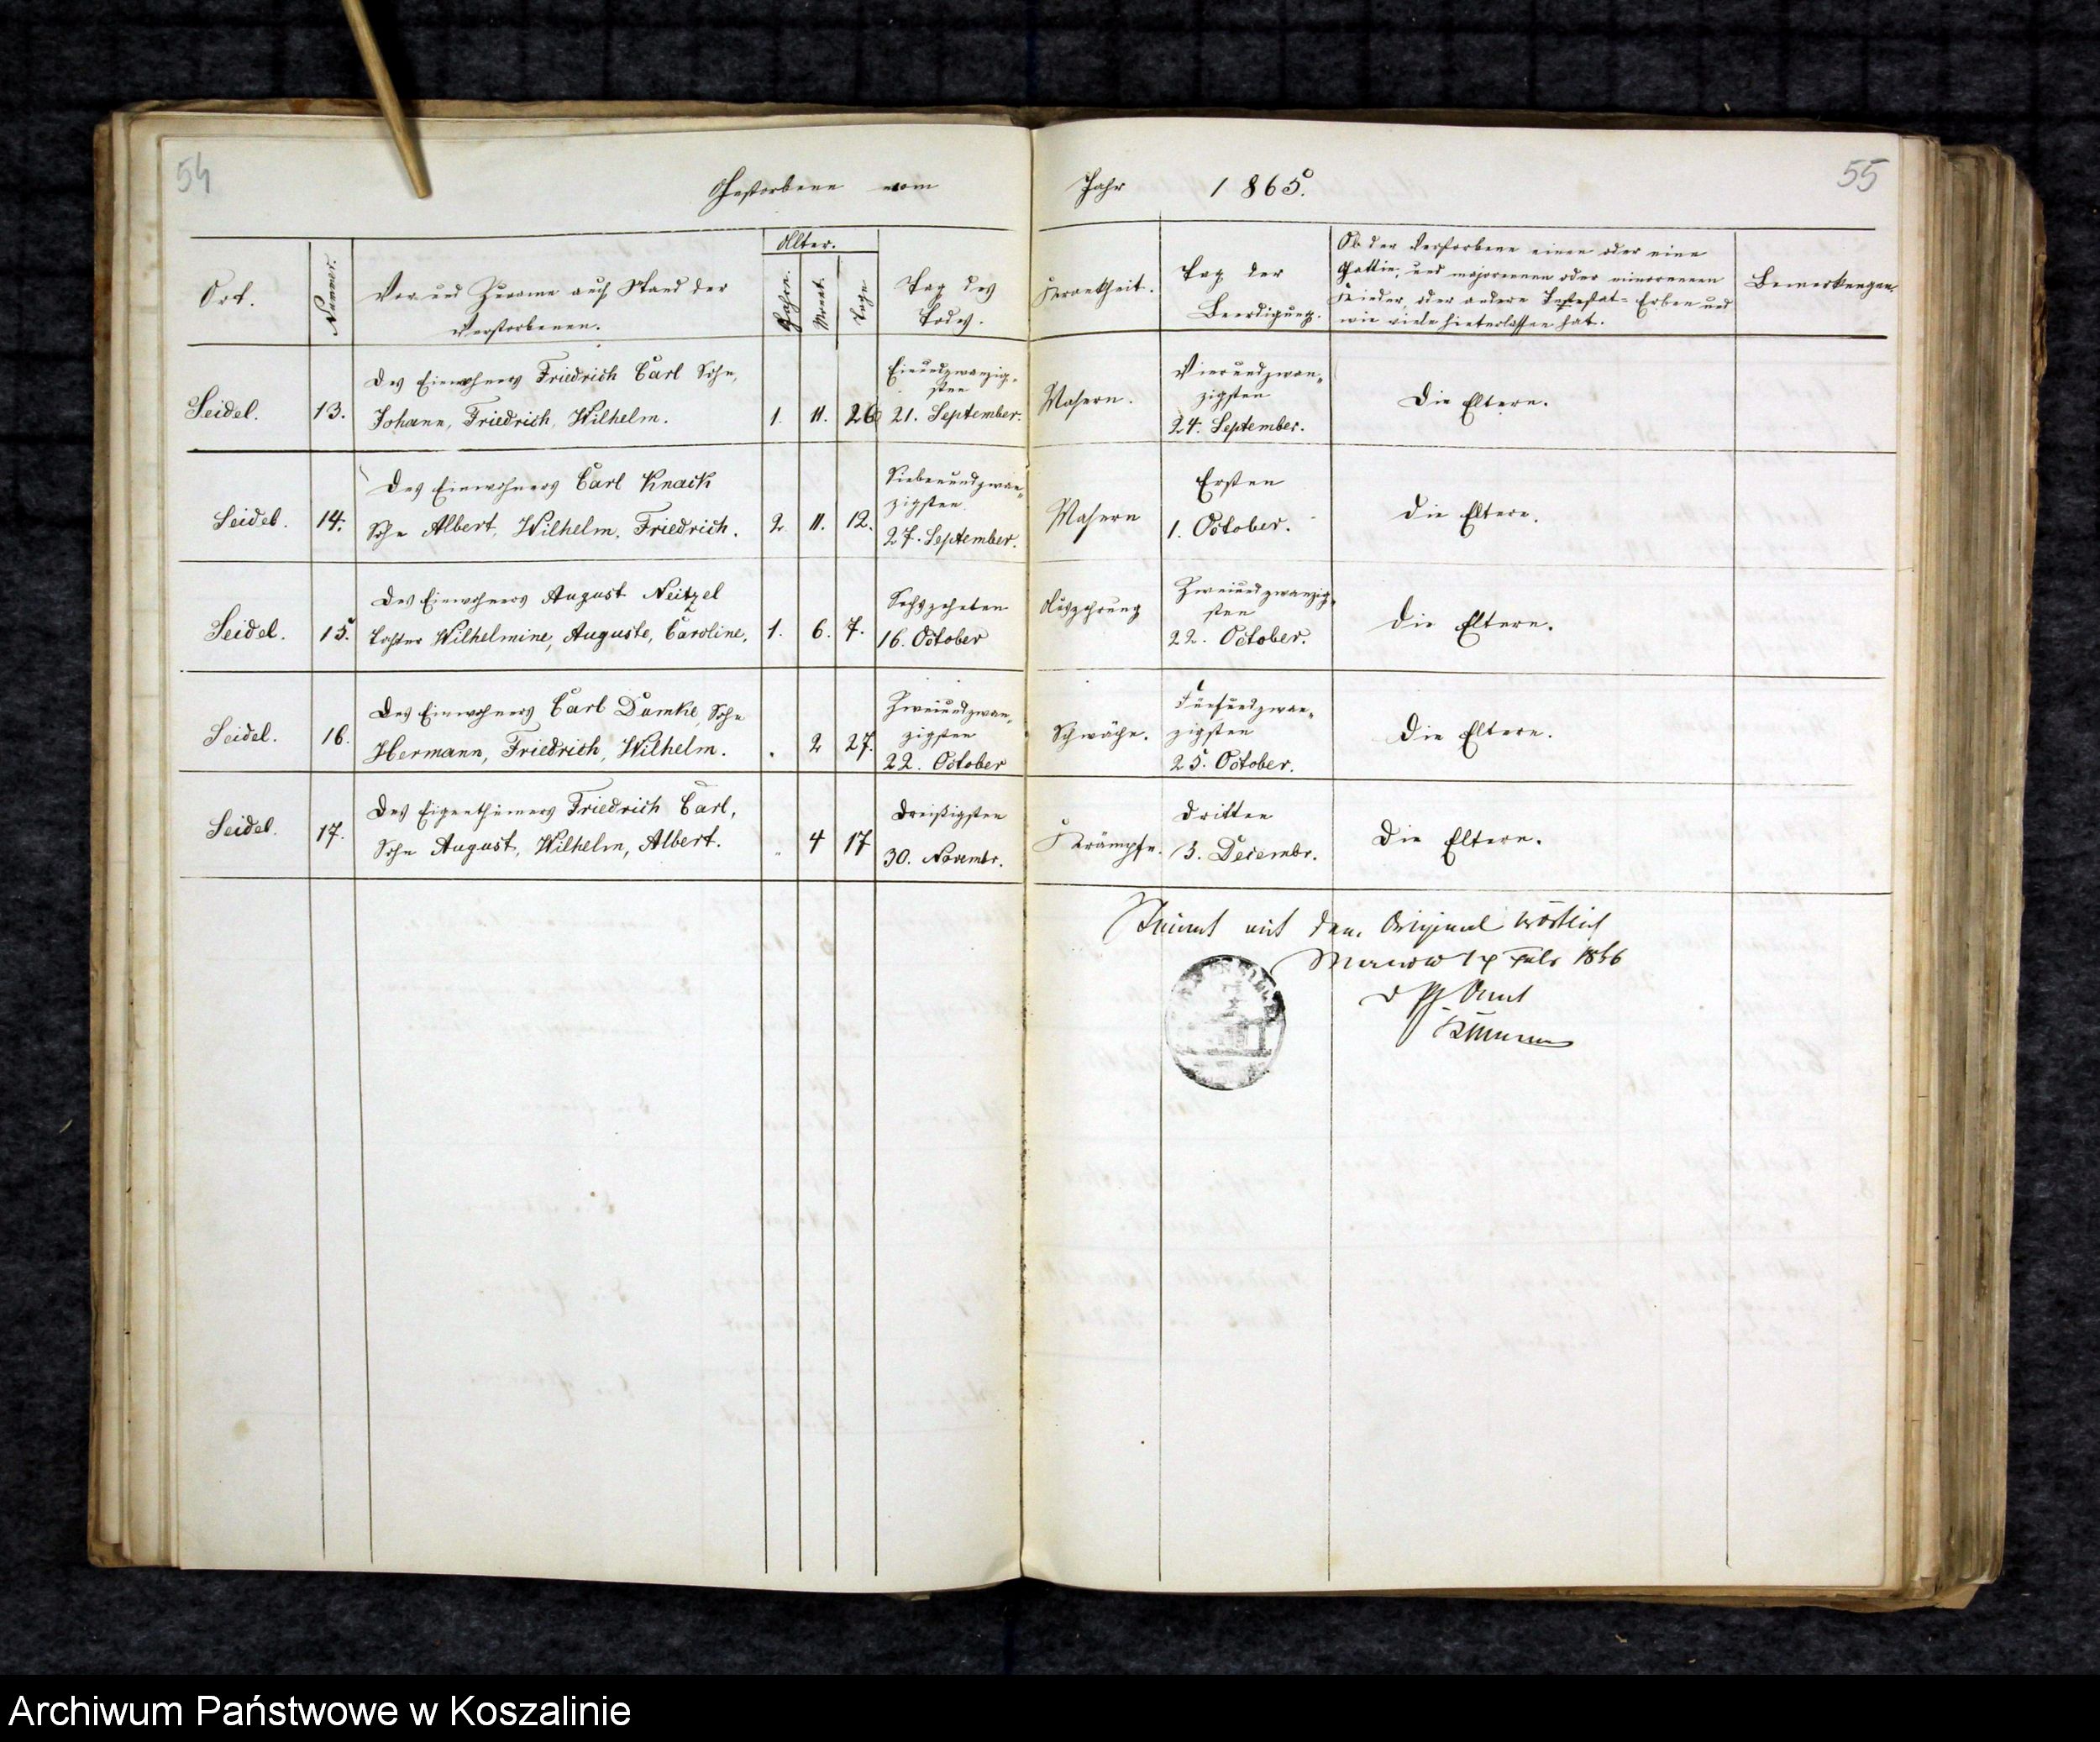 54
55
Gestorbene vom
Jahr 1865.
Ort.
Nummer.
Vor und Zuname auch Stand der
Verstorbenen.
Alter.
Jahre.
Monat.
Tage
Tag des
Todes.
Krankheit.
Tag der
Beerdigung.
Ob der Verstorbene einen oder eine
Gattin, und majorennen oder minorennen
Kinder, oder andere Intestat-Erben und
wie viele hinterlassen hat.
Bemerkungen.
Seidel.
13.
Des Einwohners Friedrich Carl Sohn,
Johann, Friedrich, Wilhelm.
1.
11.
26
Einundzwanzig-
sten
21. September.
Masern.
Vierundzwan-
zigsten
24. September.
Die Eltern.
Seidel.
14.
Des Einwohners Carl Knack
Sohn Albert, Wilhelm, Friedrich.
2
11.
12.
Siebenundzwan-
zigsten
27. September.
Masern
Ersten
1. October.
Die Eltern.
Seidel.
15.
Des Einwohners August Neitzel
Tochter Wilhelmine, Auguste, Caroline,
1.
6.
7.
Sechszehnten
16. October
Auszehrung
Zweiundzwanzig-
sten
22. October.
Die Eltern.
Seidel.
16.
Des Einwohners Carl Dumke, Sohn
Hermann, Friedrich, Wilhelm.
2
27.
Zweiundzwan-
zigsten
22. October
Schwäche.
Fünfundzwan-
zigsten
25. October.
Die Eltern.
Seidel.
17.
Des Eigenthümers Friedrich Carl,
Sohn August, Wilhelm, Albert.
4
17
Dreißigsten
30. Novembr.
Krämpfe.
Dritten
3. Decembr.
Die Eltern.
Stimmt mit dem Original wörtlich
Manow 1866
d Pf Amt
Archiwum Państwowe w Koszalinie